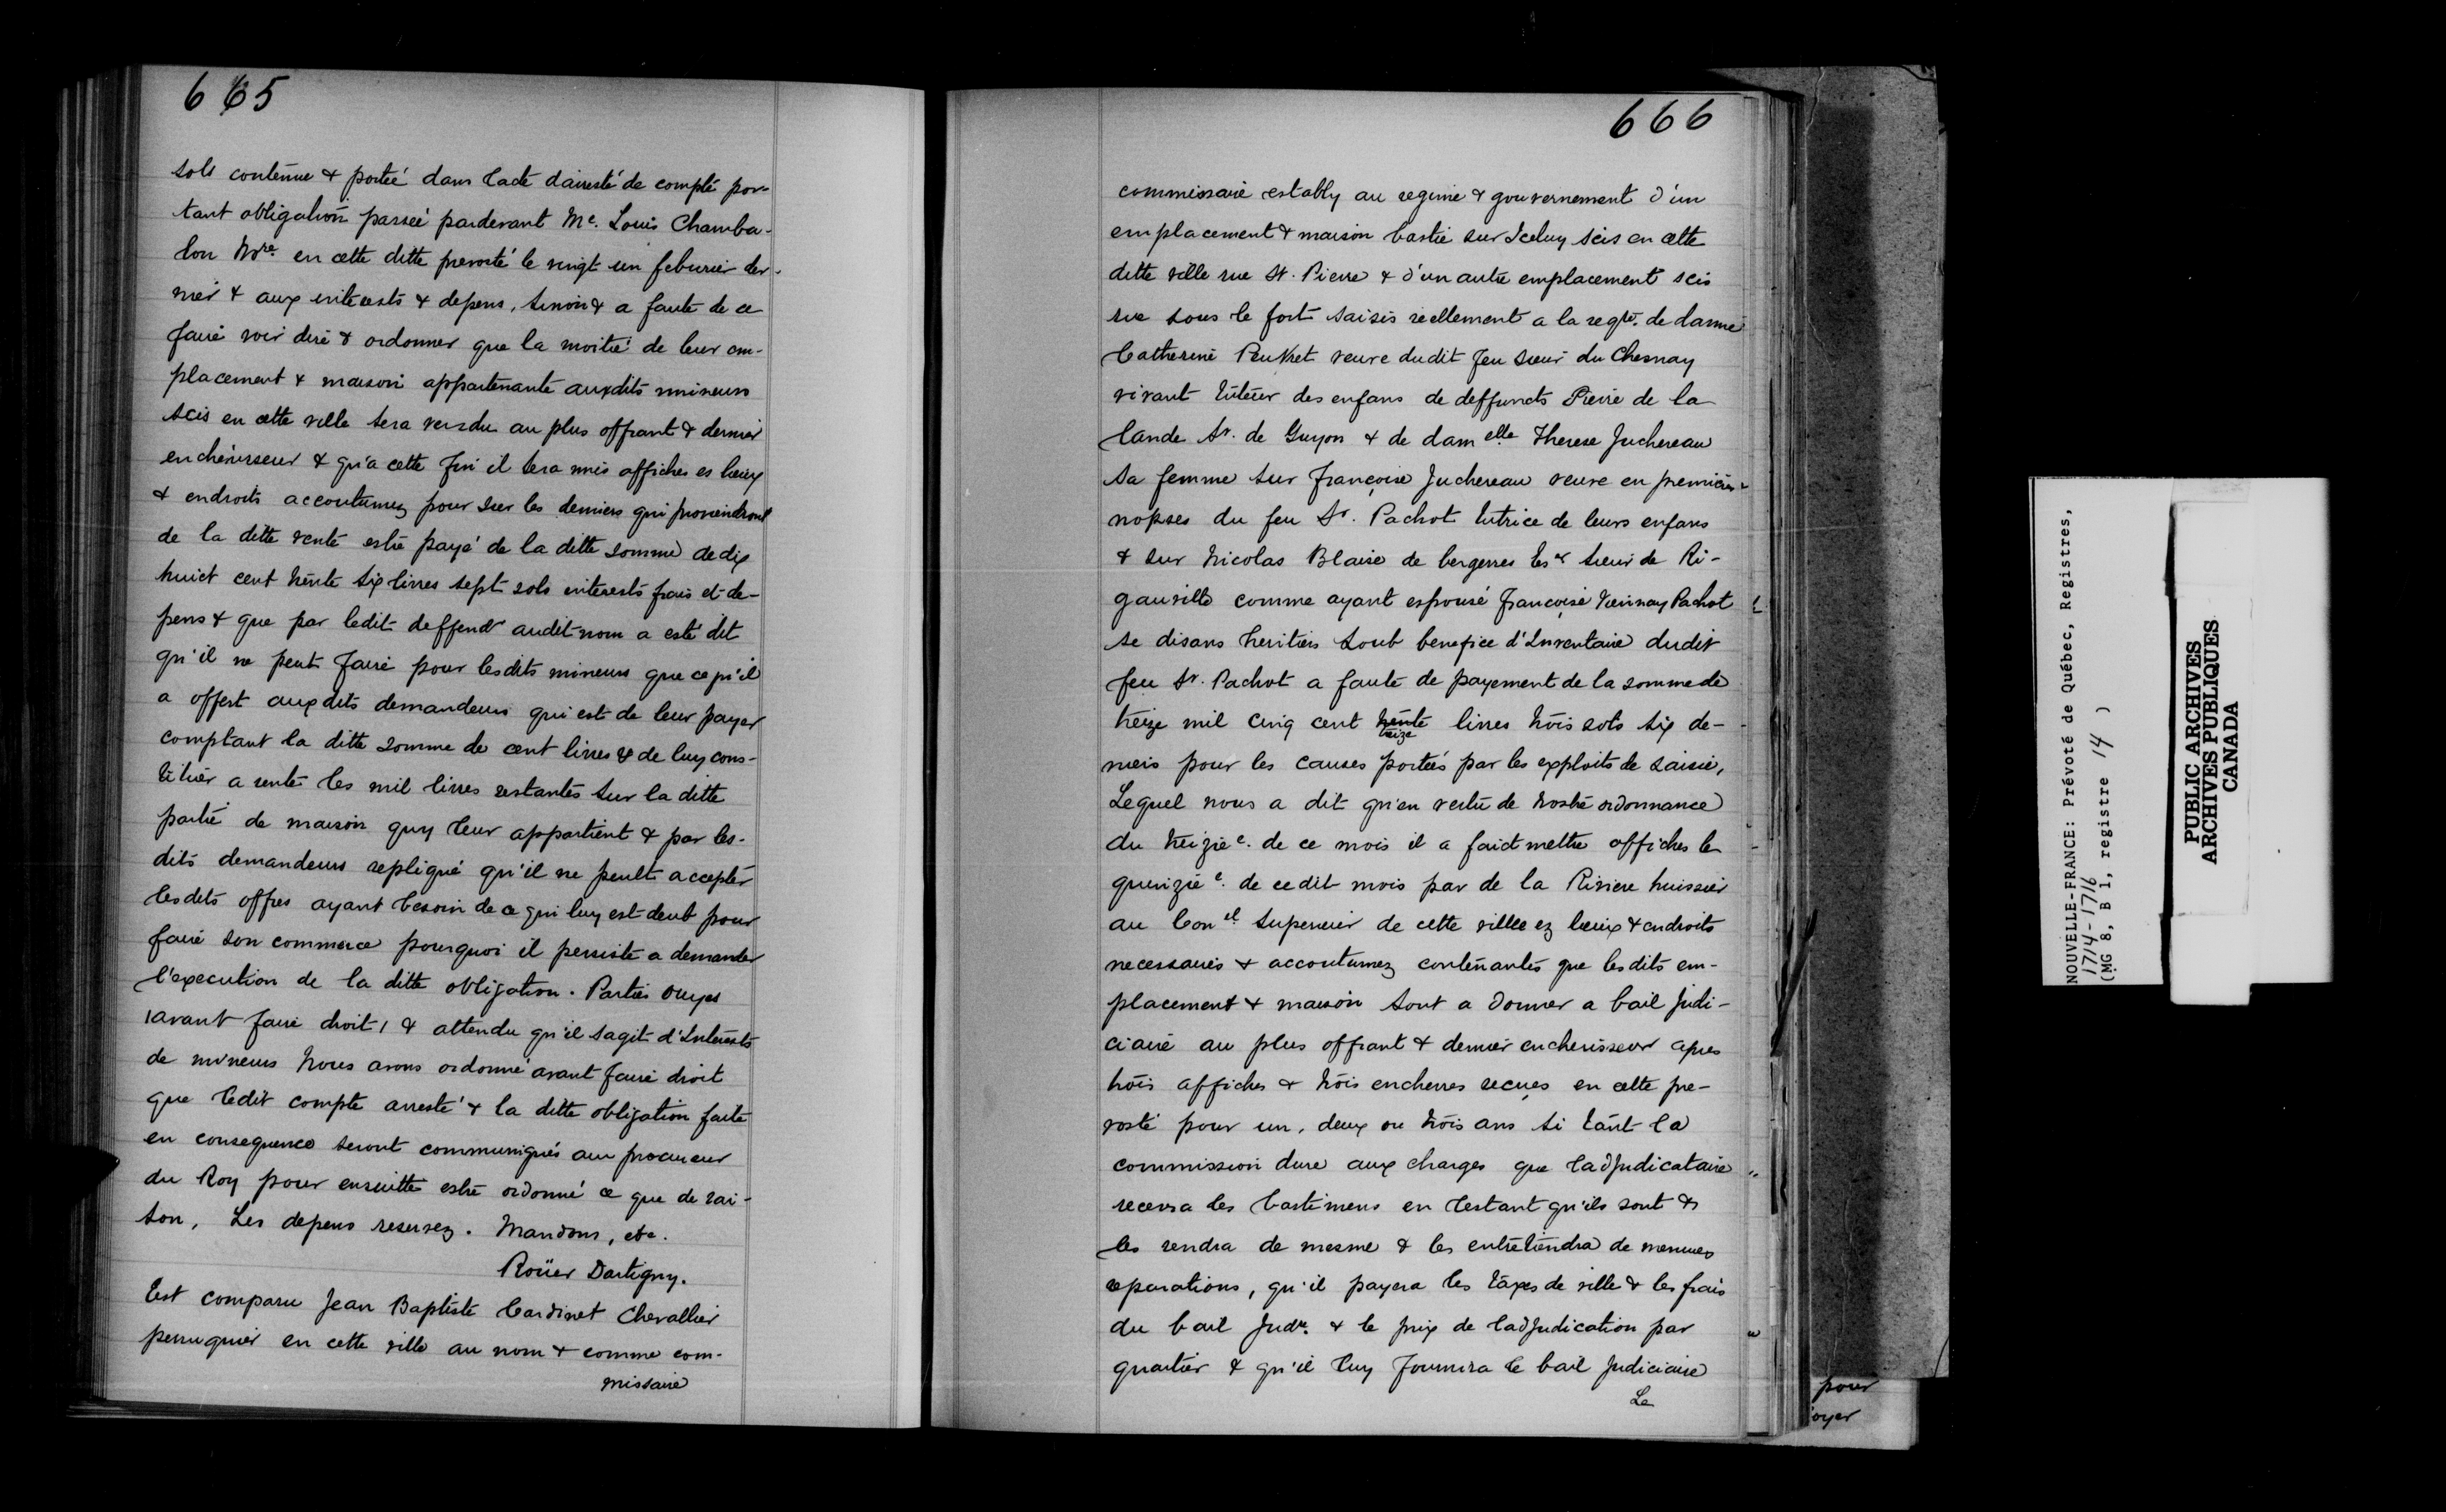 665
sols contenue & portée dans l'acte d'aresté de compte por-
tant obligation passée pardevant Me. Louis Chamba-
lon Nre. en cette ditte prevosté le vingt un feburier der-
nier & aux interests & depens, sinon & a faute de ce
faire voir dire & ordonner que la moitié de leur em-
placement & maison appartenante auxdits mineurs
scis en cette ville sera vendu au plus offrant & dernier
encherisseur & qu'a cette fin il sera mis affiches es lieux
& endroits accoutumez pour sur les deniers qui proviendront
de la ditte vente estre payé de la ditte somme de dix
huict cent trente six livres sept sols interests frais et de-
pens & que par ledit deffendr audit nom a esté dit
qu'il ne peut faire pour lesdits mineurs que ce qu'il
a offert auxdits demandeurs qui est de leur payer
comptant la ditte somme de cent livres & de luy cons-
tituer a rente les mil livres restantes sur la ditte
partie de maison quy leur appartient & par les-
dits demandeurs repliqué qu'il ne peult accepter
lesdits offres ayant besoin de ce qui luy est deut pour
faire son commerce pourquoi il persiste a demander
l'execution de la ditte obligation. Parties ouyes
(avant faire droit) & attendu qu'il sagit d'Interests
de mineurs Nous avons ordonné avant faire droit
que ledit compte arresté & la ditte obligation faite
en consequence seront communiqués au procureur
du Roy pour ensuitte estre ordonné ce que de rai-
son, Les depens reservez. Mandons, etc.
Roüer Dartigny.
Est comparu Jean Baptiste Cardinet Chevallier
perruquier en cette ville au nom & comme com-
missaire
666
commissaire estably au regime & gouvernement d'un
emplacement & maison bastie sur Iceluy scis en cette
ditte ville rue St. Pierre & d'un autre emplacement scis
rue sous le fort saisis reellement a la reqte. de dame
Catherine Peuvret veuve dudit feu sieur du Chesnay
vivant tuteur des enfans de deffuncts Pierre de la
lande Sr. de Guyon & de damelle Therese Juchereau
sa femme sur Françoise Juchereau veuve en premieres
nopses du feu Sr. Pachot tutrice de leurs enfans
& sur Nicolas Blaise de bergeres Esr sieur de Ri-
gauville comme ayant espousé Françoise Viennay Pachot
se disans heritiers soub benefice d'Inventaire dudit
feu Sr. Pachot a faute de payement de la somme de
treize mil cinq cent trente livres trois sols six de-
treize
niers pour les causes portées par les exploits de saisie,
Lequel nous a dit qu'en vertu de nostre ordonnance
du treizie. de ce mois il a faict mettre affiches le
quinzie. de cedit mois par de la Riviere huissier
au Conel. Superieur de cette villle ez lieux & endroits
necessaires & accoutumez contenantes que lesdits em-
placement & maison sont a donner a bail Judi-
ciaire au plus offrant & dernier encherisseur apres
trois affiches & trois encherres reçues en cette pre-
vosté pour un, deux ou trois ans si tant la
commission dure aux charges que l'adjudicataire
recevra les bastimens en l'estant qu'ils sont &
les rendra de mesme & les entretiendra de menues
reparations, qu'il payera les taxes de ville & les frais
du bail Judre. & le prix de l'adjudication par
quartier & qu'il luy fournira le bail Judiciaire
Le
pour
oyer
NOUVELLE-FRANCE: Prévoté de Québec, Registres,
1714-1716
(MG 8, B 1, registre 14 )
PUBLIC ARCHIVES
ARCHIVES PUBLIQUES
CANADA